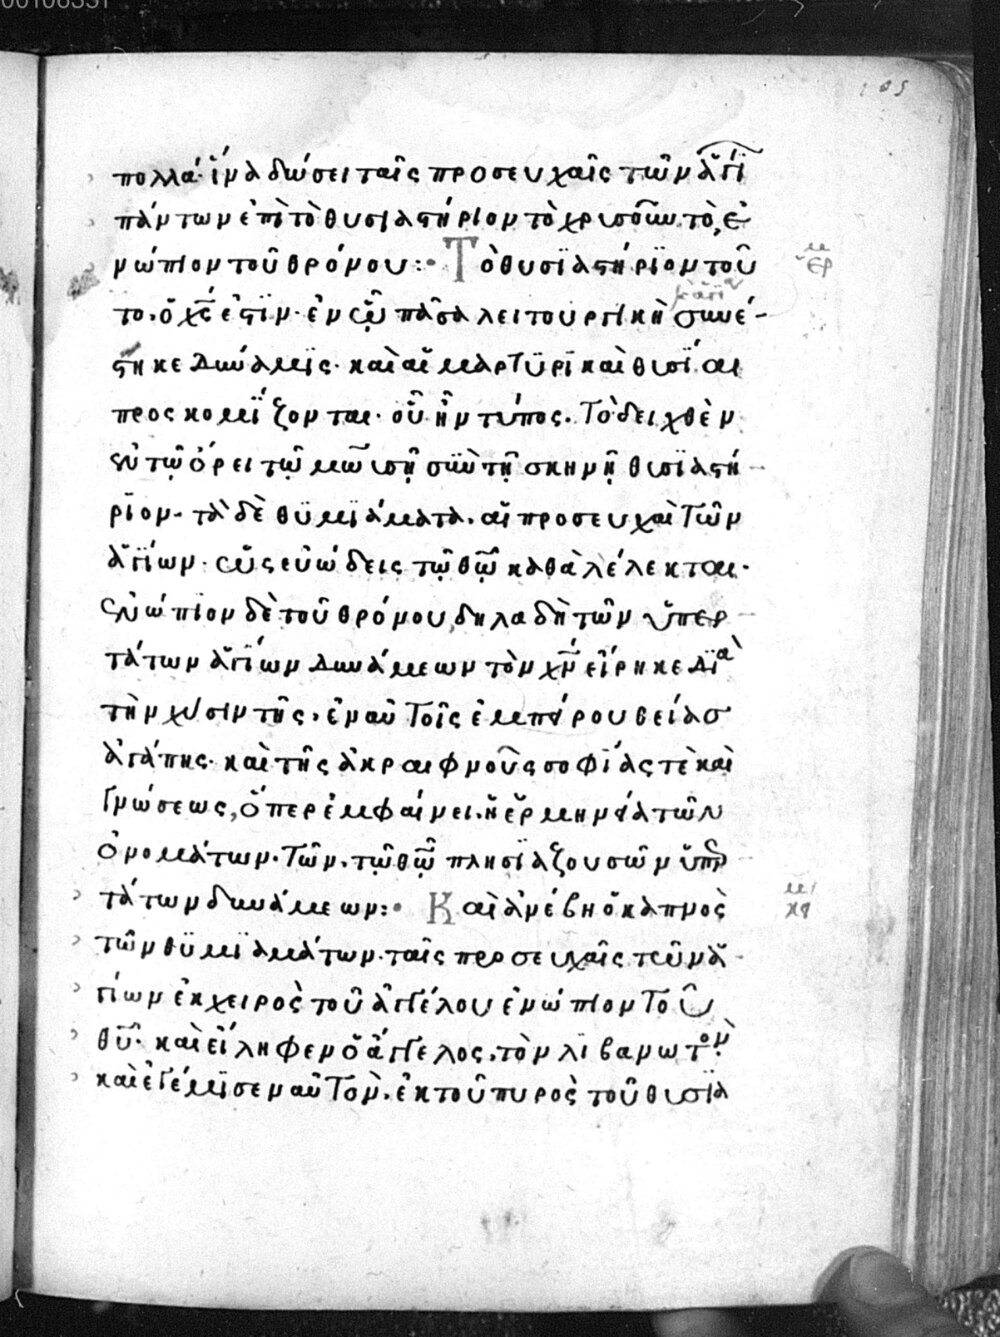 00108331
105
πολλά· ἵνα δώσει ταῖς προσευχαῖς τῶν ἁγί
πάντων ἐπὶ τὸ θυσιαστήριον τὸ χρυσοῦν. τὸ, ἐ
νώπιον τοῦ θρόνου:· Τὸ θυσϊαστήρϊον τοῦ
το. ὁ χς ἐστϊν· ἐν ᾧ πᾶσα λειτουργικὴ συνέ-
στηκε δύναμϊς· καὶ αἱ μαρτϋρικαὶ θυσϊαι
προσκομίζονται· οὗ ἦν τύπος. Τὸ δειχθὲν
ἐν τῷ ὄρει τῷ μωϋσῇ σὺν τῇ σκηνῇ θυσϊαστή
ρϊον. τὰ δὲ θϋμϊάματα. αἱ προσευχαὶ τῶν
ἁγϊων· ὡς εὐώδεις τῷ θῷ καθὰ λέλεκται·
ἐνώπϊον δὲ τοῦ θρόνου, δηλαδὴ τῶν ὑπερ
τάτων ἁγϊων δυνάμεων τὸν χν εἴρηκε δϊὰ
τὴν χύσιν τῆς. ἐν αὐτοῖς ἐμπύρου θείας
ἀγάπης· καὶ τῆς ἀκραιφνοῦς σοφϊας τὲ καὶ
γνώσεως, ὅπερ ἐμφαίνει. ἡ ἑρμηνεία τῶν
ὀνομάτων. τῶν. τῷ θῷ πλησϊαζουσῶν ὑπερ
τάτων δυνάμεων:· Καὶ ἀνέβη ὁ καπνὸς
τῶν θϋμϊαμάτων. ταῖς προσευχαῖς τῶν ἁ
γίων ἐκ χειρὸς τοῦ ἀγγέλου ἐνώπιον τοῦ
θυ· καὶ εἴληφεν ὁ ἄγγελος. τὸν λϊβανωτὸν.
καὶ ἐγέμϊσεν αὐτὸν. ἐκ τοῦ πυρὸς τοῦ θυσϊα